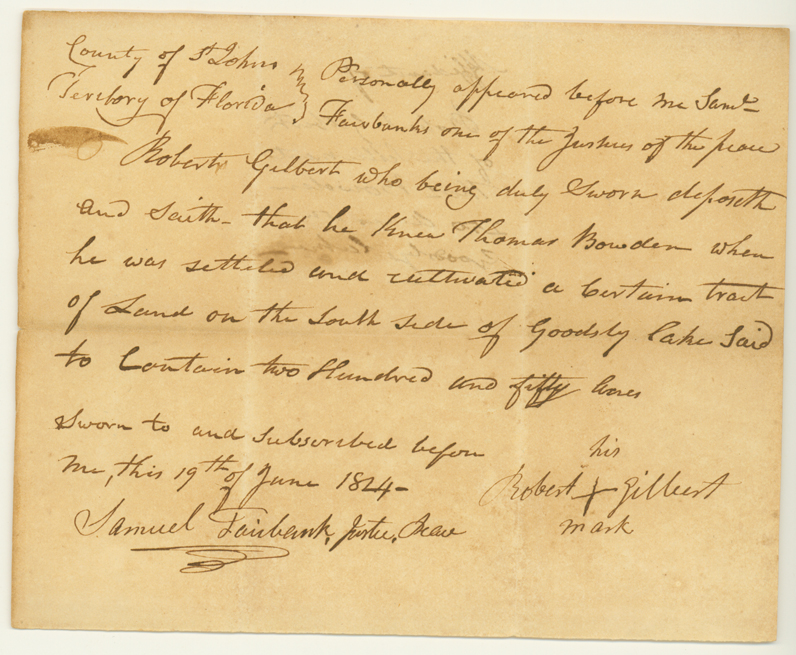 County of St Johns } Personally appeared before me Saml
Territory of Florida } Fairbanks one of the Justices of the peace
Robert Gilbert who being duly Sworn deposeth
and Saith - that he Knew Thomas Bowden when
he was settled and cultivated a Certain tract
of Land on the South side of Goodsby lake Said
to Contain two Hundred and fifty Acres
Sworn to and subscribed before
me, this 19th of June 1824 -
his
Robert + Gilbert
mark
Samuel Fairbank, Justce, Peace